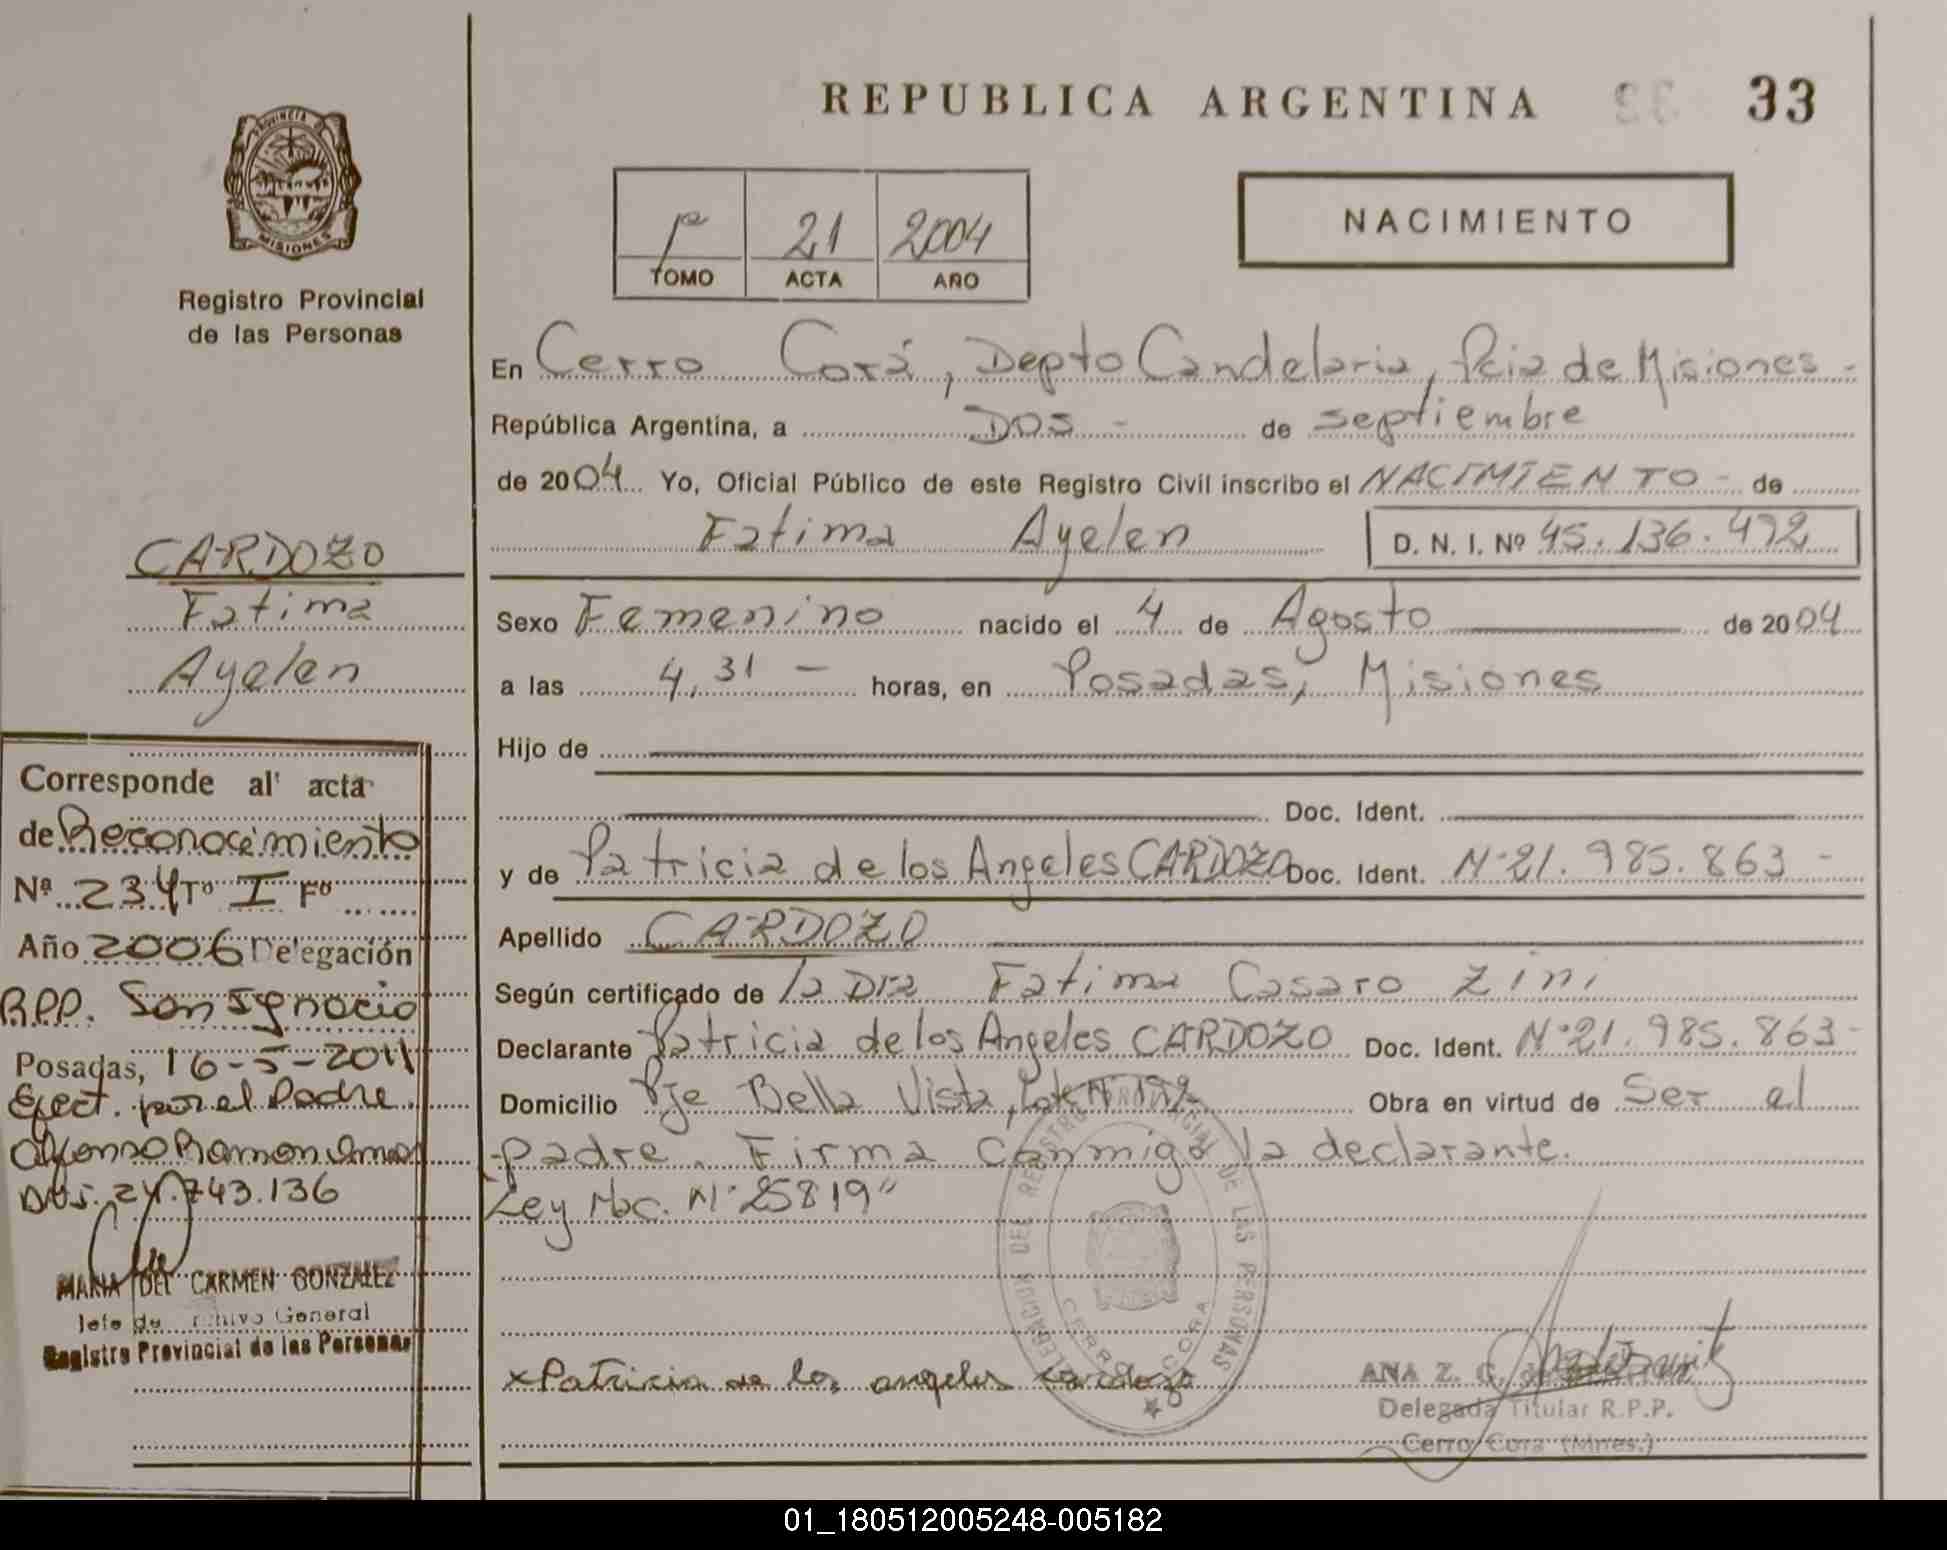 REPUBLICA ARGENTINA 33
PROVINCIA DE
MISIONES
Registro Provincial
de las Personas
1º 21 2004
TOMO ACTA AÑO
NACIMIENTO
En Cerro Corá, Depto Candelaria, Pcia de Misiones -
República Argentina, a Dos - de septiembre
de 2004 Yo, Oficial Público de este Registro Civil inscribo el NACIMIENTO - de
Fatima Ayelen D. N. I. Nº 45.136.472
CARDOZO
Fatima
Ayelen
Sexo Femenino nacido el 4 de Agosto de 2004
a las 4,31 - horas, en Posadas, Misiones
Hijo de
Doc. Ident.
y de Patricia de los Angeles CARDOZO Doc. Ident. Nº 21.985.863 -
Apellido CARDOZO
Según certificado de la Dra Fatima Casaro Zini
Declarante Patricia de los Angeles CARDOZO Doc. Ident. Nº 21.985.863 -
Domicilio Pje Bella Vista, Lote Nº 192 Obra en virtud de Ser el
padre. Firma conmigo la declarante.
Ley Nac. Nº 25819"
Corresponde al acta
de Reconocimiento
Nº 234 Tº I Fº
Año 2006 Delegación
R.P.P. San Ignacio
Posadas, 16-5-2011
Efect. por el Padre
Alfonso Ramon
DNI. 24.743.136
MARIA DEL CARMEN GONZALEZ
Jefe de Archivo General
Registro Provincial de las Personas
DELEGACION DEL REGISTRO PROVINCIAL DE LAS PERSONAS
CERRO CORA
x Patricia de los angeles cardozo
ANA Z. G. de
Delegada Titular R.P.P.
Cerro Corá (Mnes.)
01_180512005248-005182